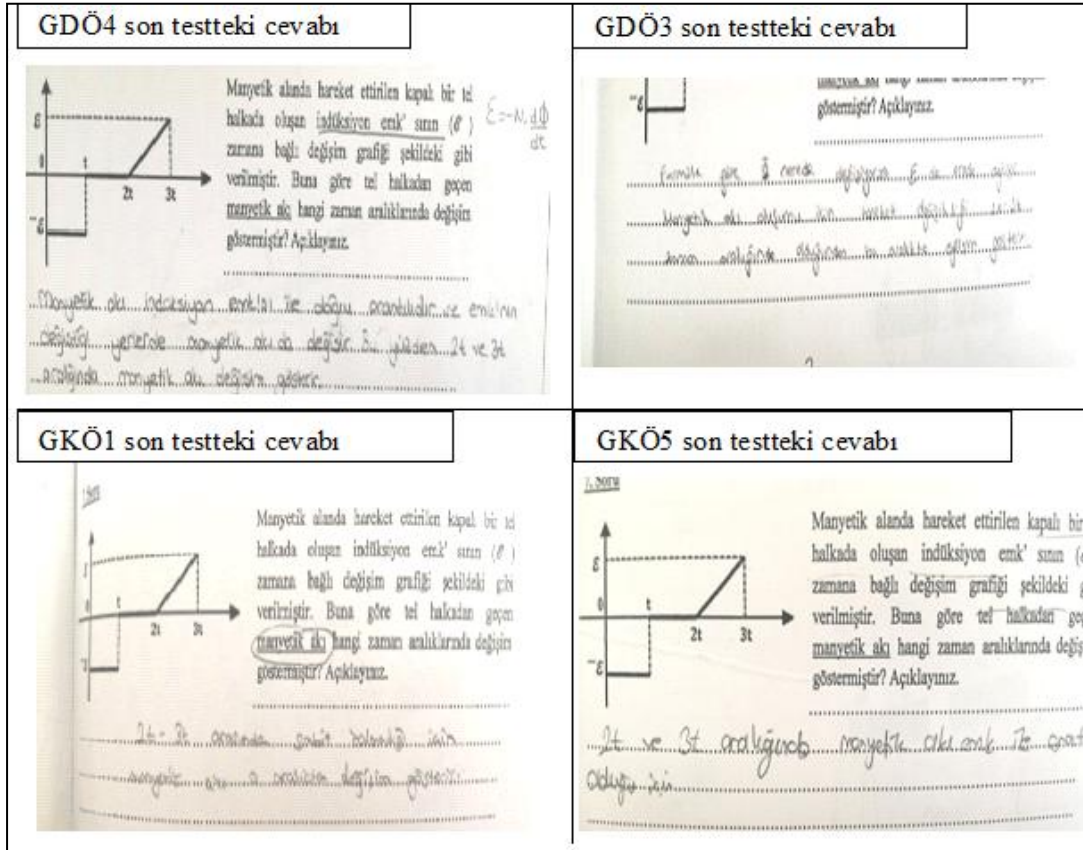 GDÖ4 son testteki cevabı
ε
0
-ε
t
2t
3t
Manyetik alanda hareket ettirilen kapalı bir tel
halkada oluşan indüksiyon emk' sının (ε)
zamana bağlı değişim grafiği şekildeki gibi
verilmiştir. Buna göre tel halkadan geçen
manyetik akı hangi zaman aralıklarında değişim
göstermiştir? Açıklayınız.
ε=-N.dΦ
dt
Manyetik akı indüksiyon emk'sı ile doğru orantılıdır ve emk'nın
değiştiği yerlerde manyetik akı da değişir. Bu yüzden 2t ve 3t
aralığında manyetik akı değişim gösterir.
GDÖ3 son testteki cevabı
-ε
manyetik akı hangi zaman
göstermiştir? Açıklayınız.
Formüle göre Φ nerede ε de
Manyetik akı için
zaman aralığında bu aralıkta
GKÖ1 son testteki cevabı
ε
0
-ε
t
2t
3t
Manyetik alanda hareket ettirilen kapalı bir tel
halkada oluşan indüksiyon emk' sının (ε)
zamana bağlı değişim grafiği şekildeki gibi
verilmiştir. Buna göre tel halkadan geçen
manyetik akı hangi zaman aralıklarında değişim
göstermiştir? Açıklayınız.
2t - 3t arasında için
manyetik akı o aralıkta değişim
GKÖ5 son testteki cevabı
7. Soru
ε
0
-ε
t
2t
3t
Manyetik alanda hareket ettirilen kapalı bir
halkada oluşan indüksiyon emk' sının
zamana bağlı değişim grafiği şekildeki
verilmiştir. Buna göre tel halkadan
manyetik akı hangi zaman aralıklarında
göstermiştir? Açıklayınız.
2t ve 3t aralığında manyetik akı emk ile
olduğu için